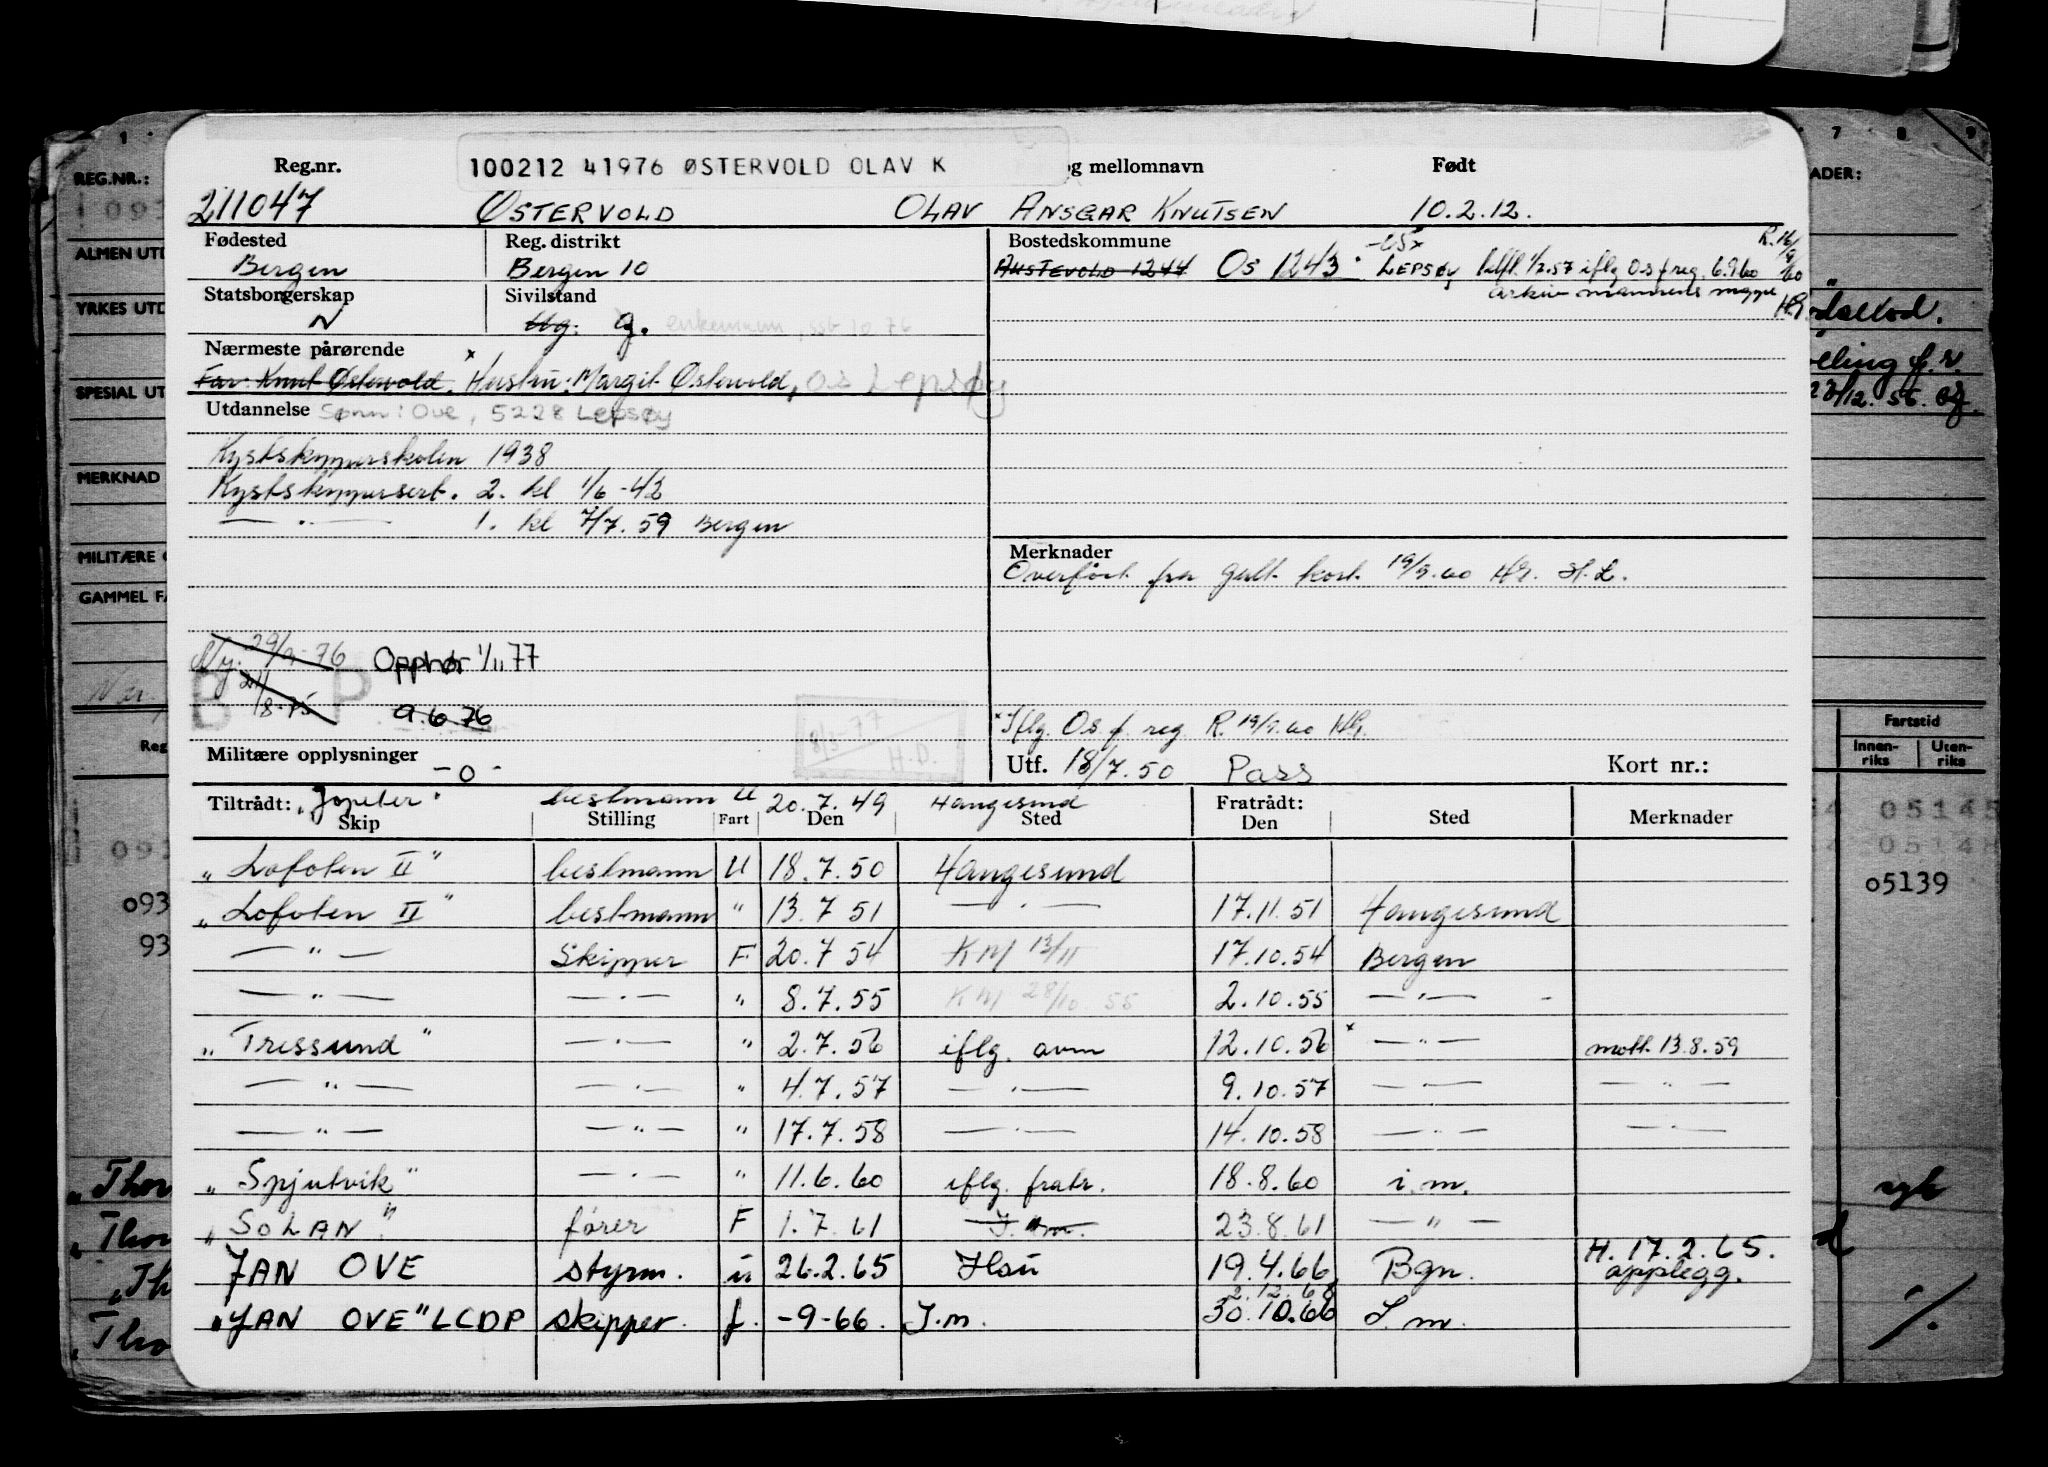 Reg.nr. 100212 41976 ØSTERVOLD OLAV K og mellomnavn Født
211047 ØSTERVOLD OLAV ANSGAR KNUTSEN 10.2.12.
Fødested Reg. distrikt Bostedskommune
Bergen Bergen 10 AUSTEVOLD 1244 Os 1243 LEPSØY 1/7.57 iflg Os f reg. 6.9.60
R. 16/9 60
arkiv mannens mappe HG.
Statsborgerskap Sivilstand
N Ug. G. enkemann
Nærmeste pårørende
Far: Knut Østervold. Hustru: Margit Østervold, OS Lepsøy
Utdannelse Sønn: Ove, 5228 Lepsøy
Kystskipperskolen 1938
Kystskippersert. 2. kl 1/6 -42
— " — 1. kl 7/7.59 Bergen
Merknader
Overført fra gult kort 19/9.60 HG. H.L.
Ny. 29/9-76 Opphør 1/11 77
B P
9.6 76
8/3-77
H.D.
Iflg. Os f. reg R. 19/9.60 HG.
Militære opplysninger -0-
Utf. 18/7.50 Pass Kort nr.:
Tiltrådt: "Jopeter" bestmann U 20.7.49 Haugesund Fratrådt:
Skip Stilling Fart Den Sted Den Sted Merknader
"Lofoten II" bestmann U 18.7.50 Haugesund
"Lofoten II" bestmann " 13.7 51 — " — 17.11.51 Haugesund
— " — Skipper F 20.7 54 KM 13/11 17.10.54 Bergen
— " — — " — " 8.7.55 KM 28/10 55 2.10.55 — " —
"Tressund" — " — " 2.7.56 iflg. avm 12.10.56 x — " — mott. 13.8.59
— " — — " — " 4.7.57 — " — 9.10.57 — " — — " —
— " — — " — " 17.7.58 — " — 14.10.58 — " — — " —
"Spjutvik" — " — " 11.6.60 iflg. fratr. 18.8.60 i.m.
"SOLAN" fører F 1.7.61 I.m. 23.8.61 — " —
JAN OVE styrm. u 26.2.65 Hsu 19.4.66 Bgn. H. 17.2.65.
opplegg.
2.12.68
"JAN OVE" LCDP skipper. f. -9-66. I.m. 30.10.66 I.m.
1 7 8 9
REG.NR.:
ALMEN UTD
YRKES UTD
SPESIAL UT
MERKNAD
MILITÆRE
GAMMEL FA
Reg
093
93
"Thor
"Thor
"Th
"Tho
ADER:
23/12. 56.
Fartstid
Innen-riks Uten-riks
05145
05148
05139